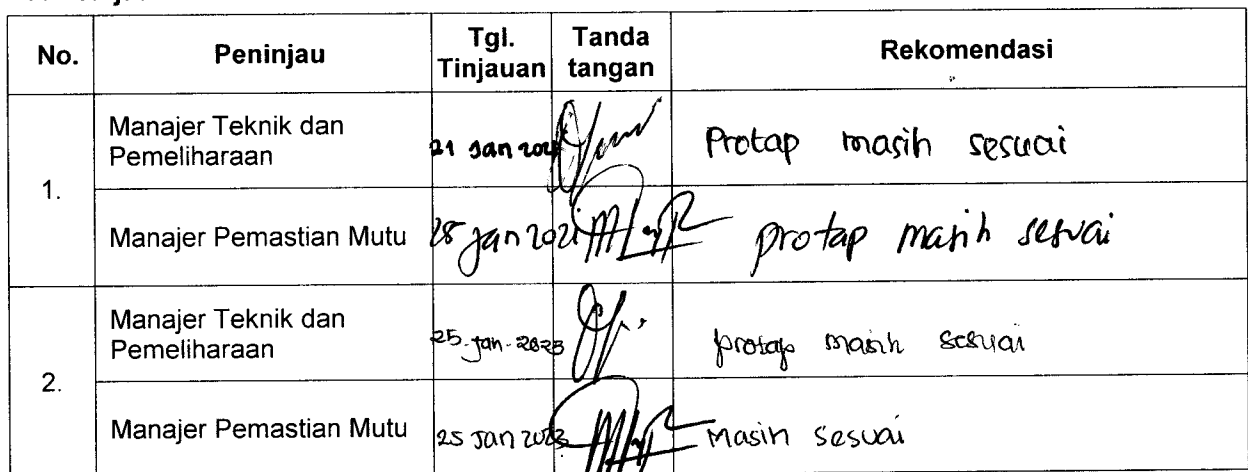 No. Peninjau Tgl. Tinjauan Tanda tangan Rekomendasi
1.
Manajer Teknik dan Pemeliharaan 21 Jan Protap masih sesuai
Manajer Pemastian Mutu 28 Jan 2021 protap masih sesuai
2.
Manajer Teknik dan Pemeliharaan 25-Jan-2023 protap masih sesuai
Manajer Pemastian Mutu 25 Jan 2023 Masih sesuai